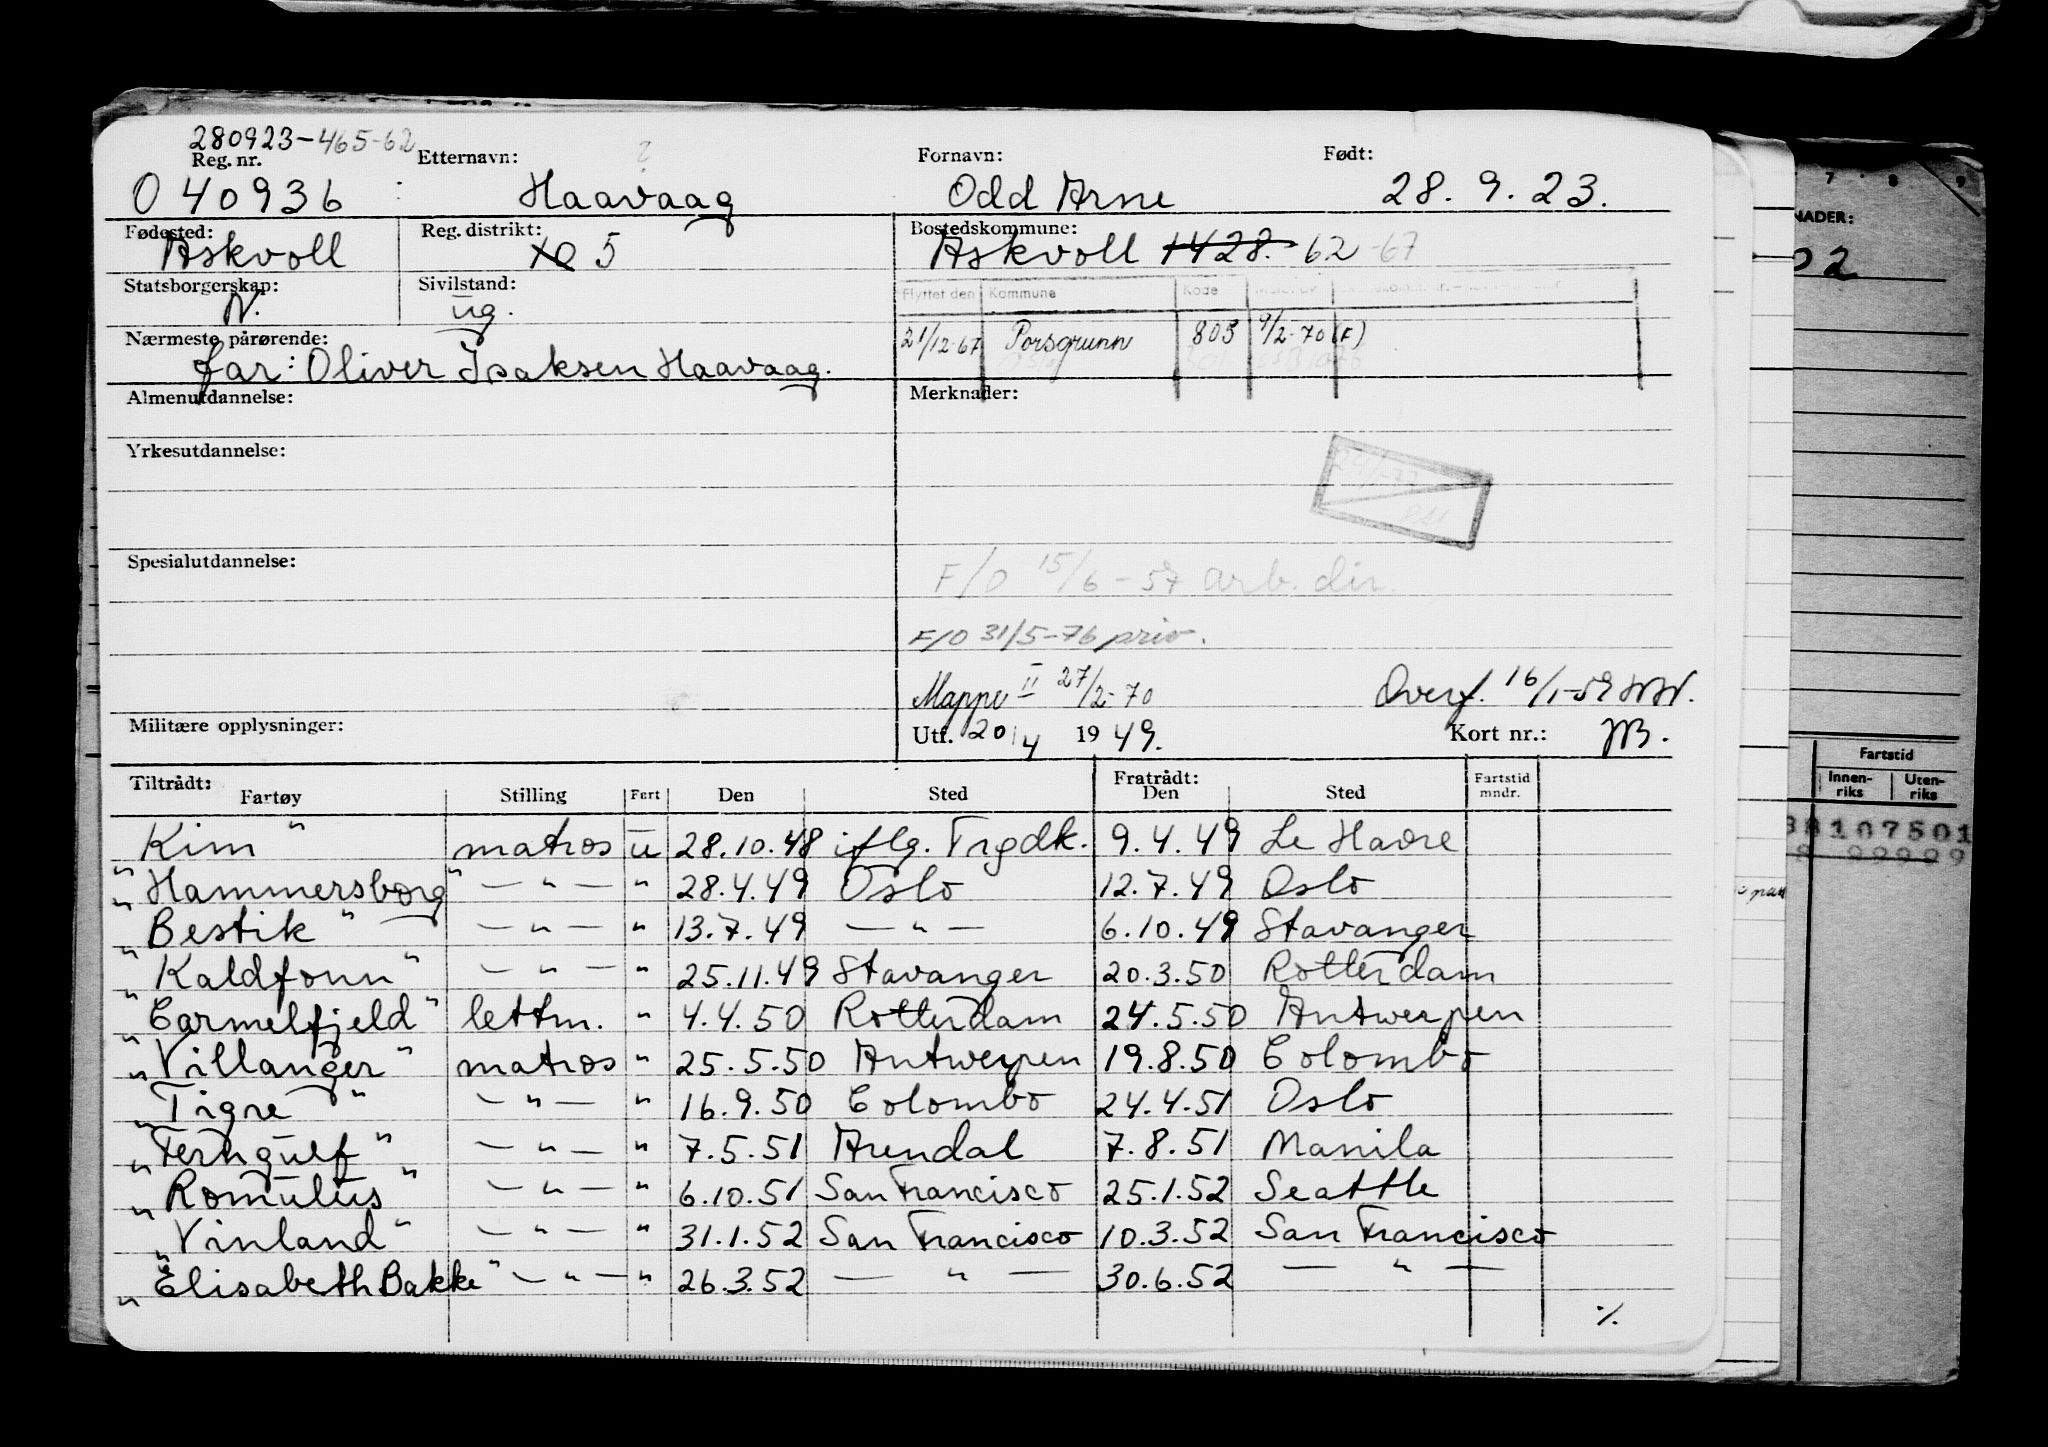 280923-465-62
Reg. nr. Etternavn: Fornavn: Født:
O 40936 : Haavaag Odd Arne 28. 9. 23.
Fødested: Reg. distrikt: Bostedskommune:
Askvoll 5 Askvoll 1428. 62-67
Statsborgerskap: Sivilstand:
N. ug.
Flyttet den Kommune Kode
21/12-67 Porsgrunn 805 9/2-70 (F)
Nærmeste pårørende:
far: Oliver Isaksen Haavaag.
Almenutdannelse: Merknader:
Yrkesutdannelse:
Spesialutdannelse:
F/O 15/6-57 arb. dir.
F/O 31/5-76 priv.
Mappe II 27/2-70 Overf. 16/1-59
Militære opplysninger: Utf. 20/4 1949. Kort nr.:
Tiltrådt: Fratrådt:
Fartøy Stilling Fart Den Sted Den Sted Fartstid mndr.
Kim" matros u 28.10.48 iflg. Trgdk. 9.4.49 Le Havre
"Hammersborg" — " — " 28.4.49 Oslo 12.7.49 Oslo
"Bestik" — " — " 13.7.49 — " — 6.10.49 Stavanger
"Kaldfonn" — " — " 25.11.49 Stavanger 20.3.50 Rotterdam
"Carmelfjeld" lettm. " 4.4.50 Rotterdam 24.5.50 Antwerpen
"Villanger" matros " 25.5.50 Antwerpen 19.8.50 Colombo
"Tigre" — " — " 16.9.50 Colombo 24.4.51 Oslo
"Ferngulf" — " — " 7.5.51 Arendal 7.8.51 Manila
"Romulus" — " — " 6.10.51 San Francisco 25.1.52 Seattle
"Vinland" — " — " 31.1.52 San Francisco 10.3.52 San Francisco
"Elisabeth Bakke" — " — " 26.3.52 — " — 30.6.52 — " —
%
7 . 8 . 9
NADER:
02
Fartstid
Innen-riks Uten-riks
107501
99999